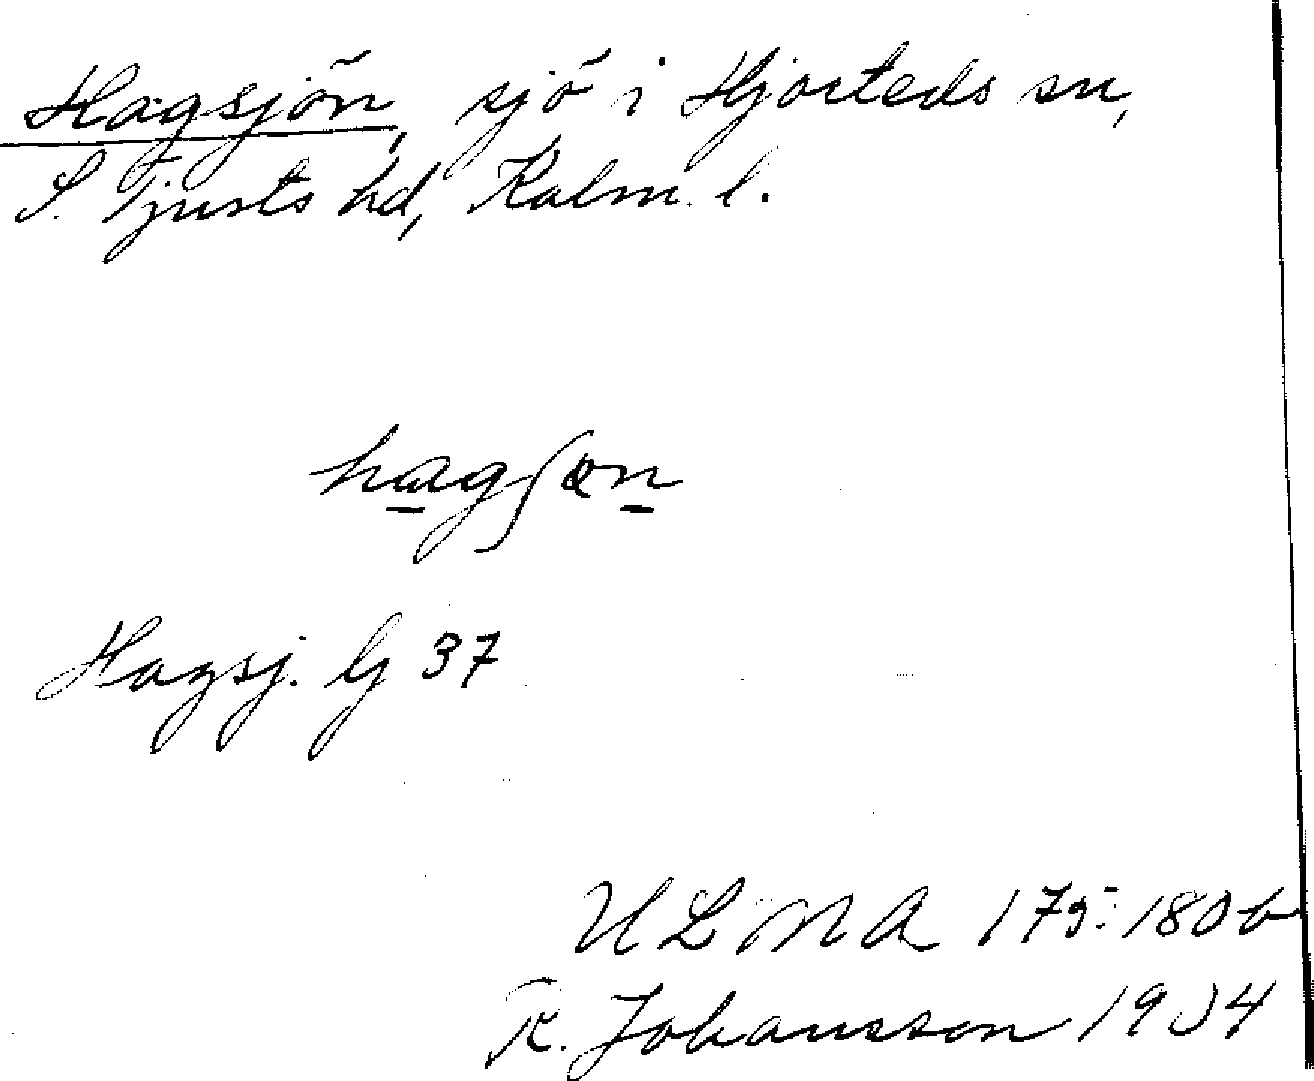 Hagsjön, sjö i Hjorteds sn,
S. Tjusts hd, Kalm. l.
hagʃøn
Hagsj. G 37
ULMA 175:180b
R. Johansson 1904